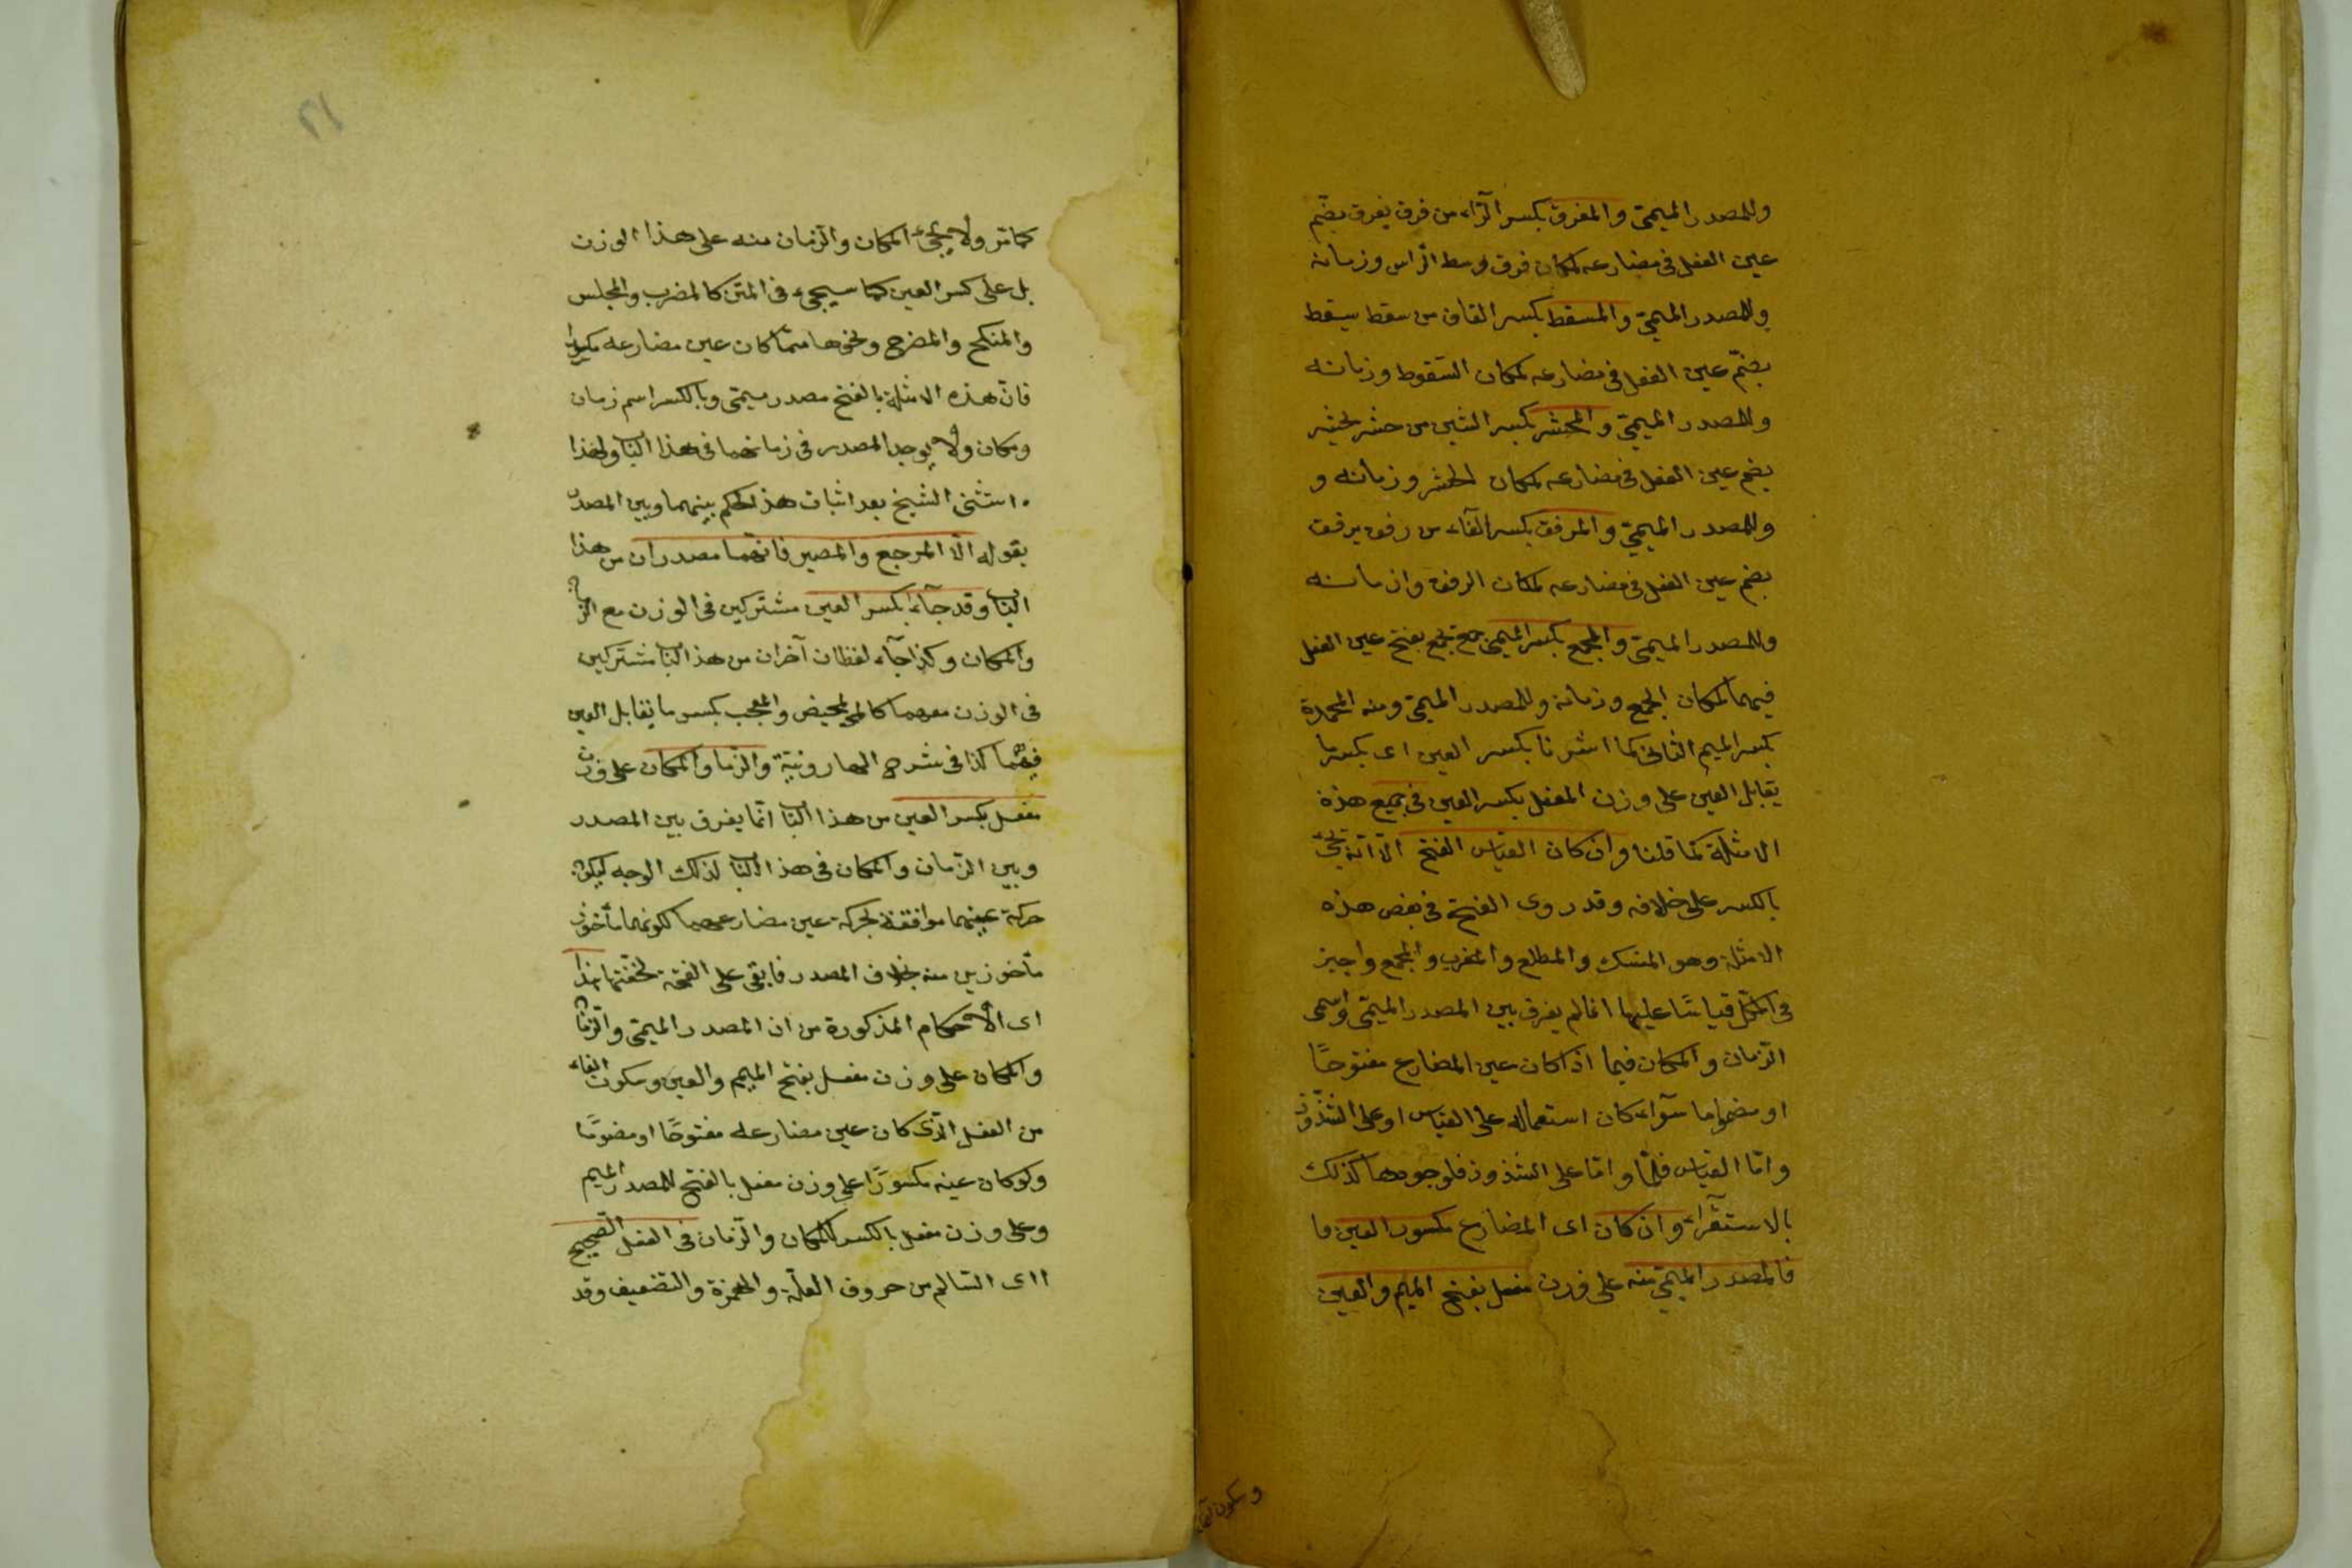 وللمصدر الميمىّ والمفرق بكسر الرّاء من فرق يفرق بضّم
عين الفعل فى مضارعه لمكان فرق وسط الرّاس وزمانه
وللمصدر الميمىّ والمسقط بكسر القاف من سقط يسقط
بضمّ عين الفعل فى مضارعه لمكان السّقوط وزمانه
وللمصدر الميمىّ والمحشر بكسر الشين من حشر يحشر
بضم عين الفعل فى مضارعه لمكان الحشر وزمانه و
وللمصدر الميمىّ والمرفق بكسر الفآء من رفق يرفق
بضم عين الفعل فى مضارعه لمكان الرفق وازمانه
وللمصدر الميمىّ والمجمع بكسر الميم جمع يجمع بفتح عين الفعل
فيهما لمكان الجمع وزمانه وللمصدر الميمىّ ومنه المحمدة
بكسر الميم الثانى كما اشرنا بكسر العين اى بكسر ما
يقابل العين على وزن المفعل بكسر العين فى جميع هذه
الامثلة كما قلنا وان كان القياس الفتح الّا انّه يجئ
بالكسر على خلافه وقد روى الفتح فى بعض هذه
الامثلة وهو المنسك والمطلع والمغرب والمجمع واجيز
فى الكلّ قياسًا عليها انما لم يفرق بين المصدر الميمّى واسمى
الزّمان والمكان فيما اذا كان عين المضارع مفتوحًا
او مضموما سوآء كان استعماله على القياس او على الشّذوذ
وامّا القياس فلمّا وامّا على الشذوذ فلوجودها كذلك
بالاستقرآء وان كان اى المضارع مكسور العين ما
فالمصدر الميمىّ منه على وزن مفعل بفتح الميم والعين
وسكون الفاء
٢١
كما مّر ولا يجئ المكان والزّمان منه على هذا الوزن
بل على كسر العين كما سيجىء فى المتن كالمضرب والمجلس
والمنكح والمضرح ونحوها ممّا كان عين مضارعه مكسورا
فانّ هذه الامثلة بالفتح مصدر ميمّى وبالكسر اسم زمان
ومكان ولا يوجد المصدر فى زمانهما فى هذا الباب ولهذا
استثنى الشيخ بعد اثبات هذا الحكم بينهما وبين المصدر
بقوله الّا المرجع والمصير فانّهما مصدران من هذا
الباب وقد جآءا بكسر العين مشتركين فى الوزن مع الزمان
والمكان وكذا جآء لفظان آخران من هذا الباب مشتركين
فى الوزن معهما كالمحيض والمعجب بكسر ما يقابل العين
فيهما كذا فى شرح الهارونيّة والزمان والمكان على وزن
مفعل بكسر العين من هذا الباب انّما يفرق بين المصدر
وبين الزّمان والمكان فى هذا الباب لذلك الوجه ليكون
حركة عينهما موافقة لحركة عين مضارعهما لكونهما مأخوذ
مأخوذين منه بخلاف المصدر فابقى على الفتحة لخفّتها هذا
اى الأحكام المذكورة من ان المصدر الميمّى والزّمان
والمكان على وزن مفعل بفتح الميم والعين وسكون الفاء
من الفعل الّذى كان عين مضارعه مفتوحًا او مضمومًا
ولو كان عينه مكسورًا على وزن مفعل بالفتح للمصدر الميم
وعلى وزن مفعل بالكسر للمكان والزّمان فى الفعل الصّحيح
اى السّالم من حروف العلّة والهمزة والتضعيف وقد